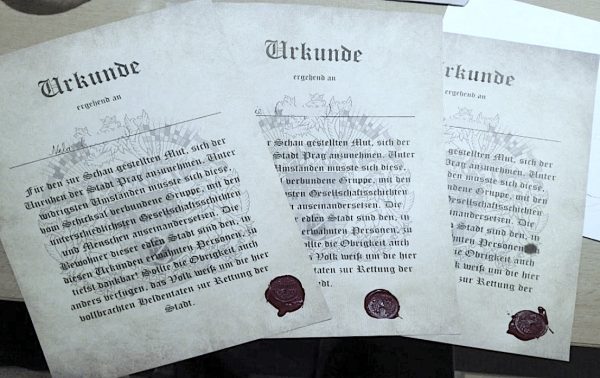 Urkunde
ergehend an
Für den zur Schau gestellten Mut, sich der
Unruhen der Stadt Prag anzunehmen. Unter
widrigsten Umständen musste sich diese,
vom Schicksal verbundene Gruppe, mit den
unterschiedlichsten Gesellschaftsschichten
und Menschen auseinandersetzen. Die
Bewohner dieser edlen Stadt sind den, in
diesen Urkunden erwähnten Personen, zu
tiefst dankbar! Sollte die Obrigkeit auch
anders verfügen, das Volk weiß um die hier
vollbrachten Heldentaten zur Rettung der
Stadt.
Urkunde
ergehend an
r Schau gestellten Mut, sich der
Stadt Prag anzunehmen. Unter
Umständen musste sich diese,
verbundene Gruppe, mit den
sten Gesellschaftsschichten
auseinandersetzen. Die
edlen Stadt sind den, in
erwähnten Personen, zu
Sollte die Obrigkeit auch
Volk weiß um die hier
dentaten zur Rettung der
dt.
rkunde
ergehend an
gestellten Mut, sich der
Prag anzunehmen. Unter
en musste sich diese,
ne Gruppe, mit den
Gesellschaftsschichten
ndersetzen. Die
Stadt sind den, in
nten Personen
die Obrigkeit auch
weiß um die hier
zur Rettung der